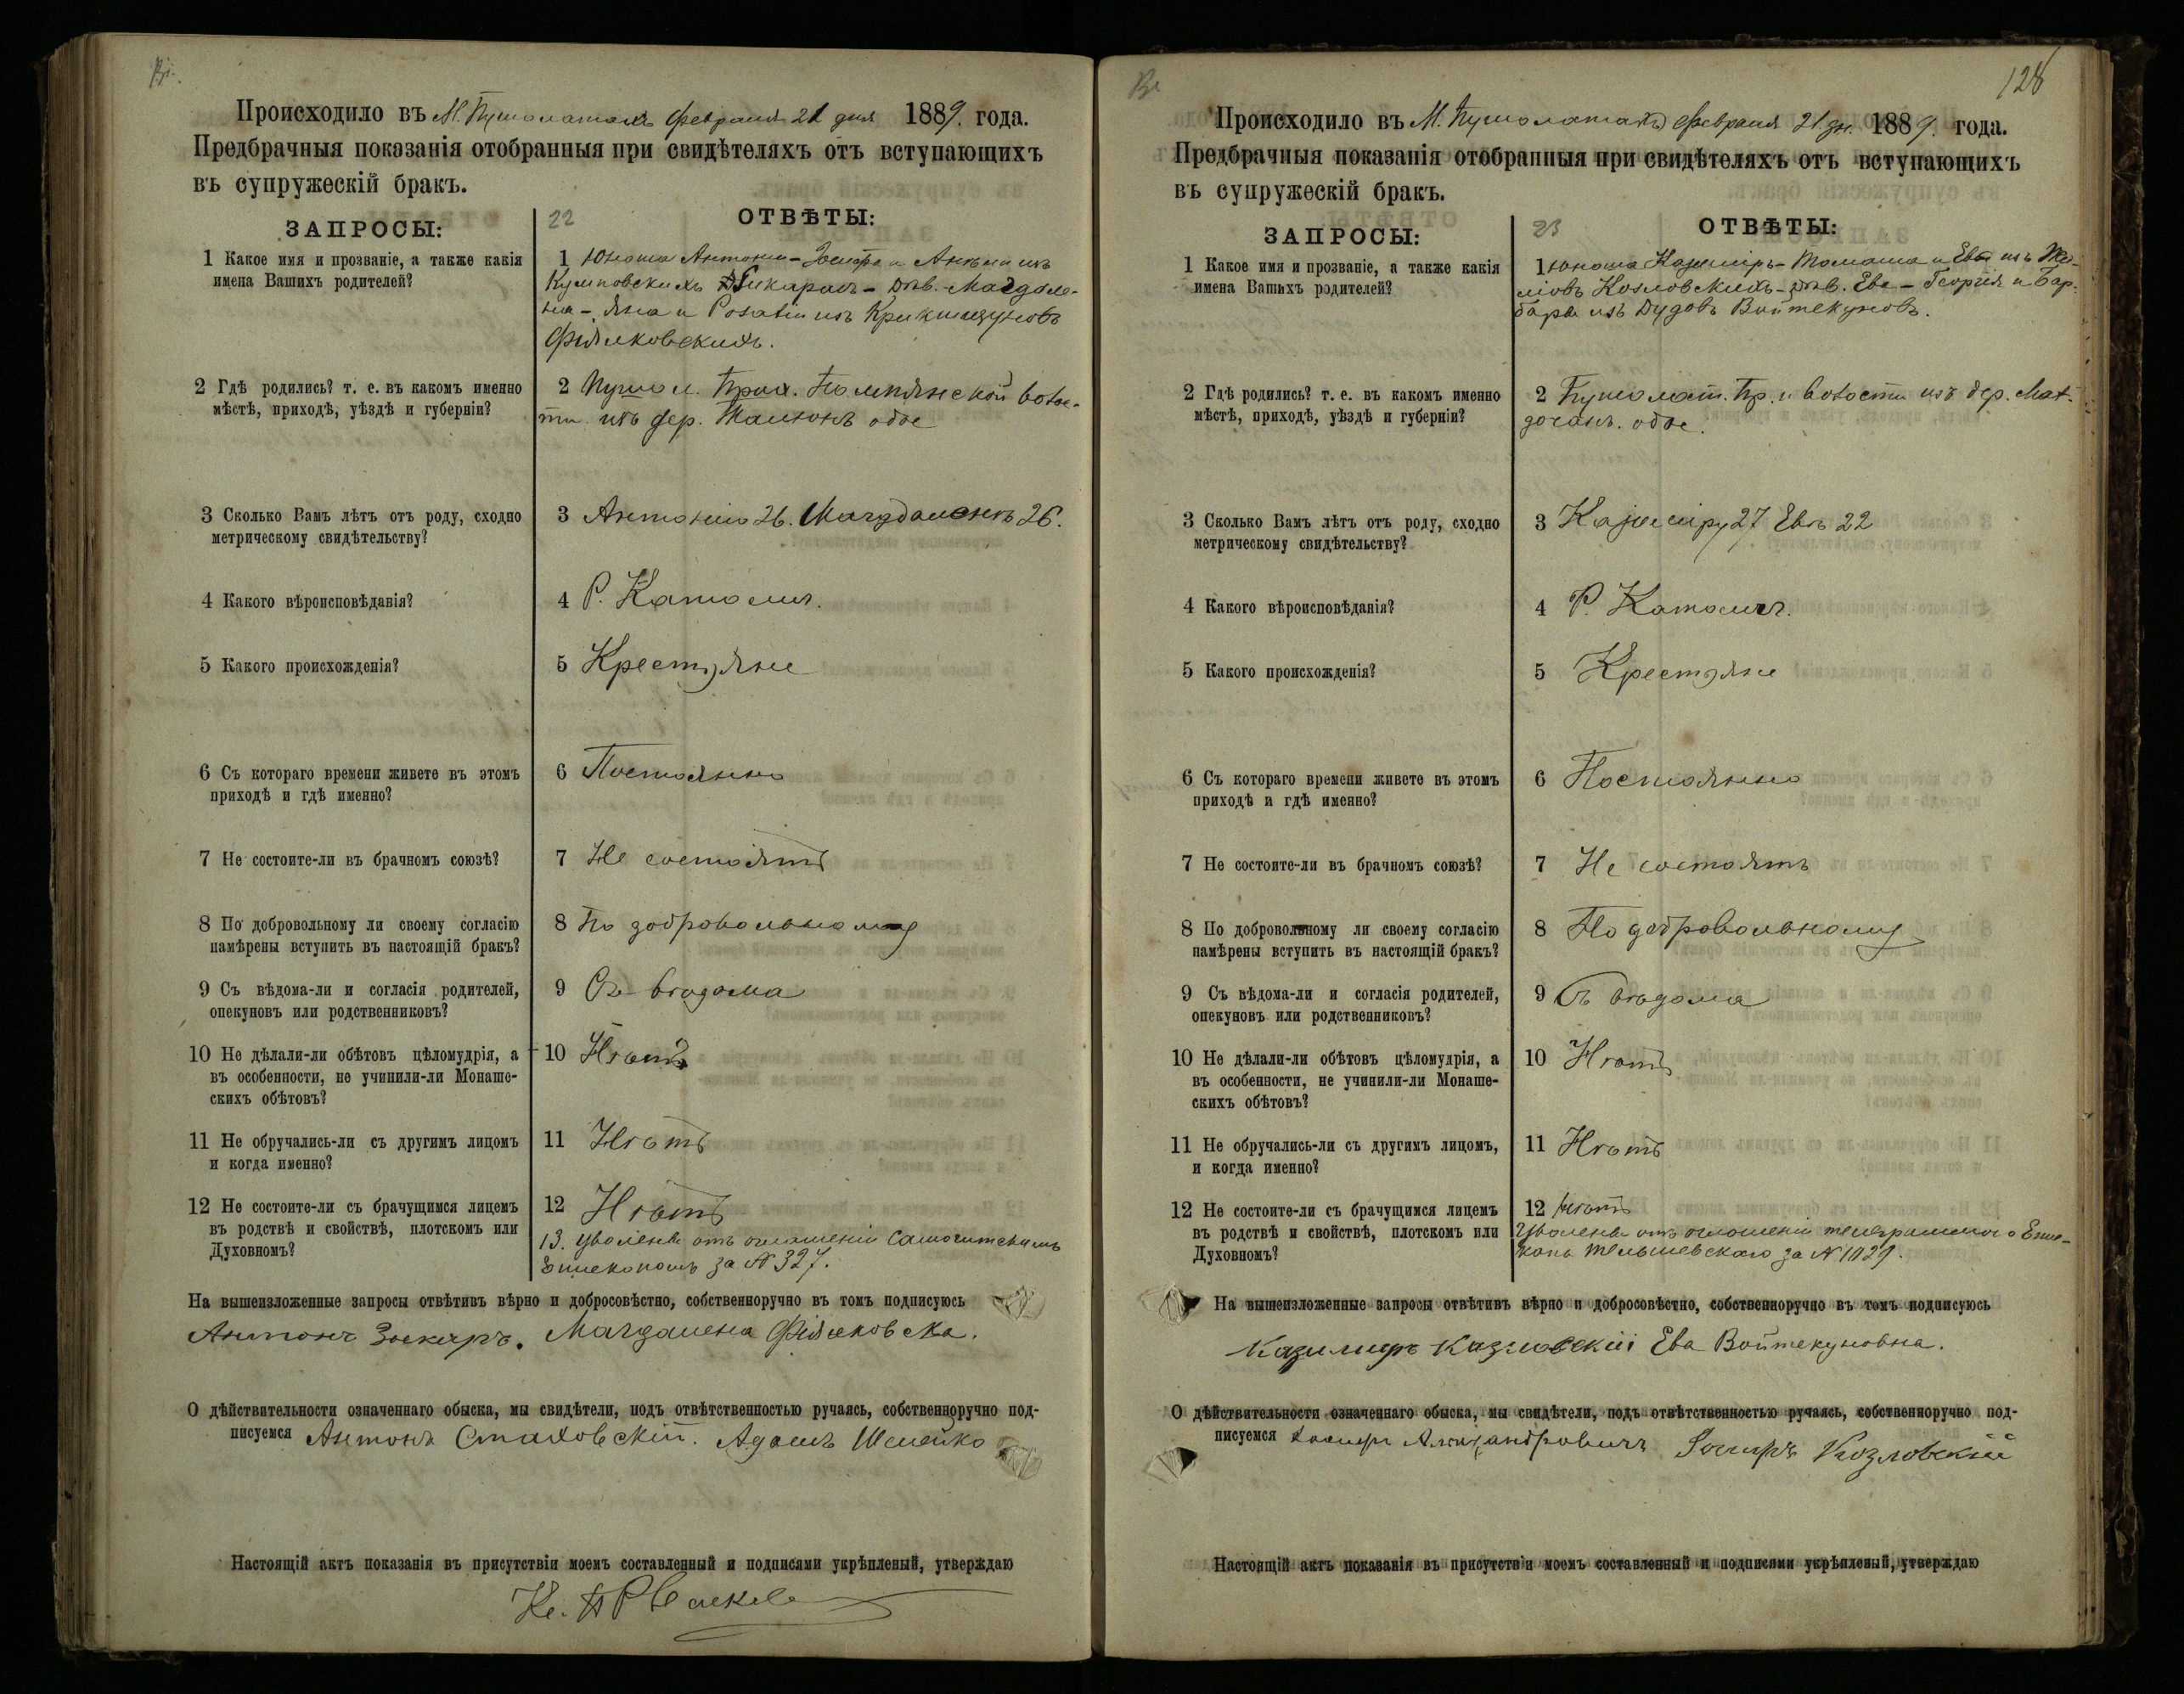 Происходило въ М. Пушолатахъ Февраля 21 дня 1889. года.
Предбрачныя показанія отобранныя при свидѣтеляхъ отъ вступающихъ
въ супружескій бракъ.
22
ЗАПРОСЫ:
ОТВѢТЫ:
1 Какое имя и прозваніе, а также какія
имена Вашихъ родителей?
1 Юноша Антони - Іосифа и Анели изъ
- дѣв. Магдале-
на - Яна и Розаліи изъ
Фіялковскихъ.
2 Гдѣ родились? т. е. въ какомъ именно
мѣстѣ, приходѣ, уѣздѣ и губерніи?
2 Пушол. Прих. Помпянской волос-
ти изъ дер. обое
3 Сколько Вамъ лѣтъ отъ роду, сходно
метрическому свидѣтельству?
3 Антонію 26. Магдаленѣ 26.
4 Какого вѣроисповѣданія?
4 Р. Католич.
5 Какого происхожденія?
5 Крестьяне
6 Съ котораго времени живете въ этомъ
приходѣ и гдѣ именно?
6 Постоянно
7 Не состоите-ли въ брачномъ союзѣ?
7 Не состоятъ
8 По добровольному ли своему согласію
намѣрены вступить въ настоящій бракъ?
8 По добровольному
9 Съ вѣдома-ли и согласія родителей,
опекуновъ или родственниковъ?
9 Съ вѣдома
10 Не дѣлали-ли обѣтовъ цѣломудрія, а
въ особенности, не учинили-ли Монаше-
скихъ обѣтовъ?
10 Нѣтъ
11 Не обручались-ли съ другимъ лицомъ
и когда именно?
11 Нѣтъ
12 Не состоите-ли съ брачущимся лицемъ
въ родствѣ и свойствѣ, плотскомъ или
Духовномъ?
12 Нѣтъ
13. Уволены отъ оглашеніи Самогитскимъ
Епископомъ за № 327.
На вышеизложенные запросы отвѣтивъ вѣрно и добросовѣстно, собственноручно въ томъ подписуюсь
Антонъ Магдалена Фіялковска.
О дѣйствительности означеннаго обыска, мы свидѣтели, подъ отвѣтственностью ручаясь, собственноручно под-
писуемся Антонъ Стаховскій. Адамъ Шлейко
Настоящій актъ показанія въ присутствіи моемъ составленный и подписями укрѣпленый, утверждаю
128
Происходило въ М. Пушолатахъ Февраля 21 дн. 1889. года.
Предбрачныя показанія отобранныя при свидѣтеляхъ отъ вступающихъ
въ супружескій бракъ.
23
ЗАПРОСЫ:
ОТВѢТЫ:
1 Какое имя и прозваніе, а также какія
имена Вашихъ родителей?
1 Юноша Казиміръ - Томаша и Евы изъ
Козловскихъ - дѣв. Ева - Георгія и Бар-
бары изъ Дудовъ Войтекуновъ.
2 Гдѣ родились? т. е. въ какомъ именно
мѣстѣ, приходѣ, уѣздѣ и губерніи?
2 Пушолат. Пр. и волости изъ дер.
обое.
3 Сколько Вамъ лѣтъ отъ роду, сходно
метрическому свидѣтельству?
3 Казиміру 27 Евѣ 22
4 Какого вѣроисповѣданія?
4 Р. Католич.
5 Какого происхожденія?
5 Крестьяне
6 Съ котораго времени живете въ этомъ
приходѣ и гдѣ именно?
6 Постоянно
7 Не состоите-ли въ брачномъ союзѣ?
7 Не состоятъ
8 По добровольному ли своему согласію
намѣрены вступить въ настоящій бракъ?
8 По добровольному
9 Съ вѣдома-ли и согласія родителей,
опекуновъ или родственниковъ?
9 Съ вѣдома
10 Не дѣлали-ли обѣтовъ цѣломудрія, а
въ особенности, не учинили-ли Монаше-
скихъ обѣтовъ?
10 Нѣтъ
11 Не обручались-ли съ другимъ лицомъ,
и когда именно?
11 Нѣтъ
12 Не состоите-ли съ брачущимся лицемъ
въ родствѣ и свойствѣ, плотскомъ или
Духовномъ?
12 Нѣтъ
Уволены отъ оглашеніи телеграммою Епис-
копа Тельшевскаго за № 1029.
На вышеизложенные запросы отвѣтивъ вѣрно и добросовѣстно, собственноручно въ томъ подписуюсь
Казимиръ Казловскій Ева Войтекуновна.
О дѣйствительности означеннаго обыска, мы свидѣтели, подъ отвѣтственностью ручаясь, собственноручно под-
писуемся Іосифъ Александровичъ Іосифъ Козловскій
Настоящій актъ показанія въ присутствіи моемъ составленный и подписями укрѣпленый, утверждаю